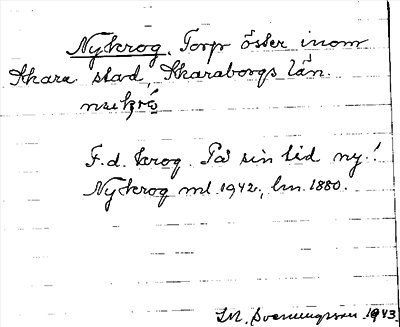 Nykrog. Torp öster inom
Skara stad, Skaraborgs län.
F.d. krog. På sin tid ny!
Nykrog ml. 1942, lm. 1880.
1943.